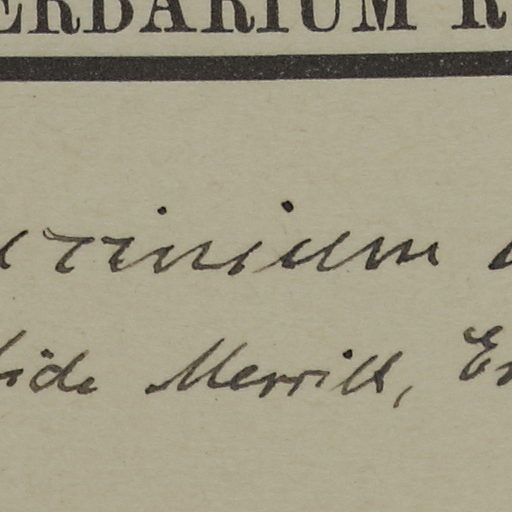 ERBARIUM R
cinium
fide Merrill, En